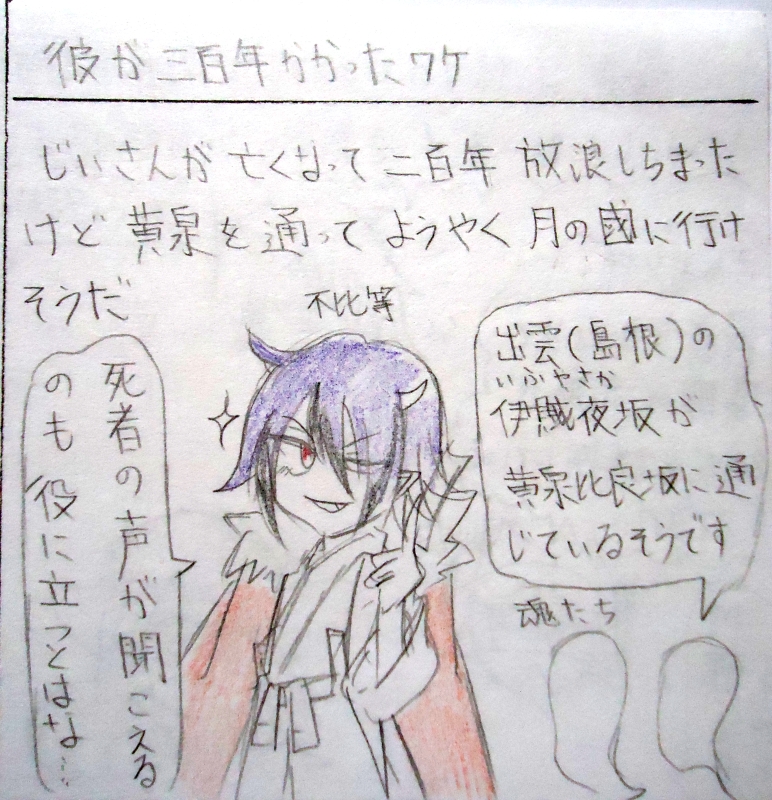 彼が三百年かかったワケ
じいさんが亡くなって二百年放浪しちまった
けど黄泉を通ってようやく月の國に行け
そうだ
不比等
出雲(島根)の
いふやさか
伊賦夜坂が
黄泉比良坂に通
じているそうです
魂たち
死者の声が聞こえる
のも役に立つとはな…